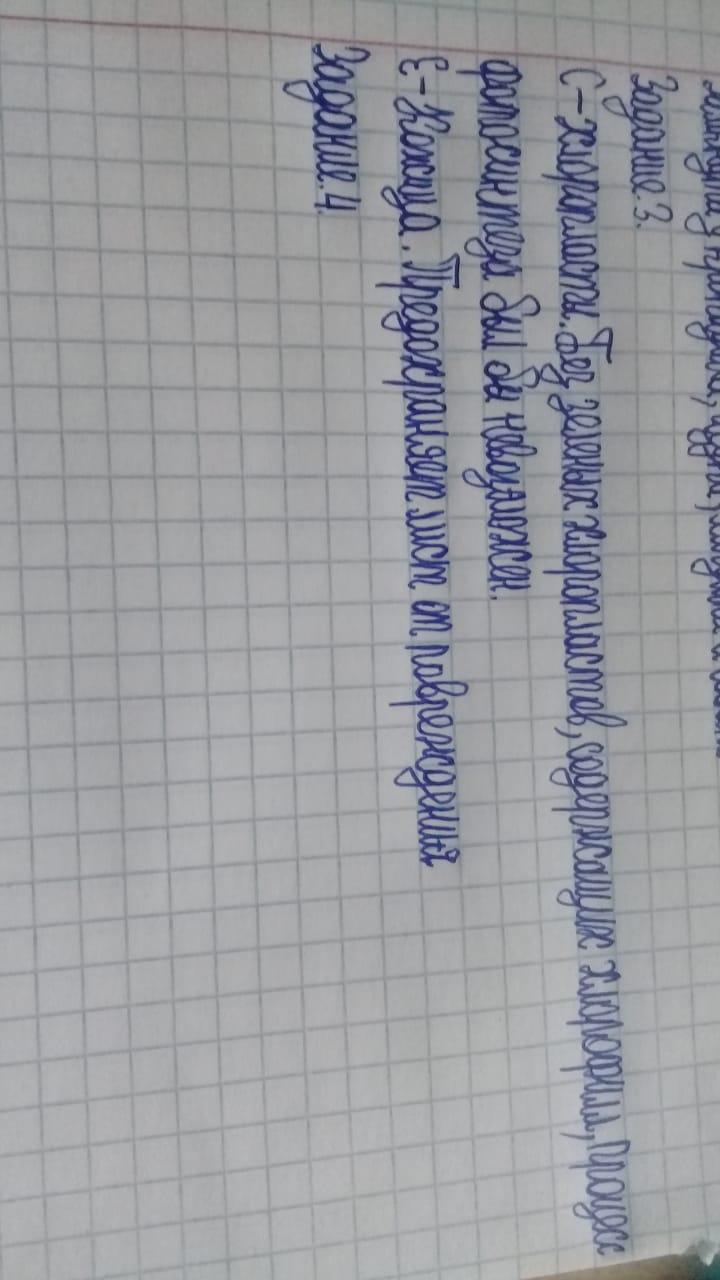 Задание.3.
С-хлоропласты. Без зеленых хлоропластов, содержащих хлорофилл, процесс
фотосинтеза был бы невозможен.
Е-Кожица. Предохраняет лист от повреждений
Задание.4.